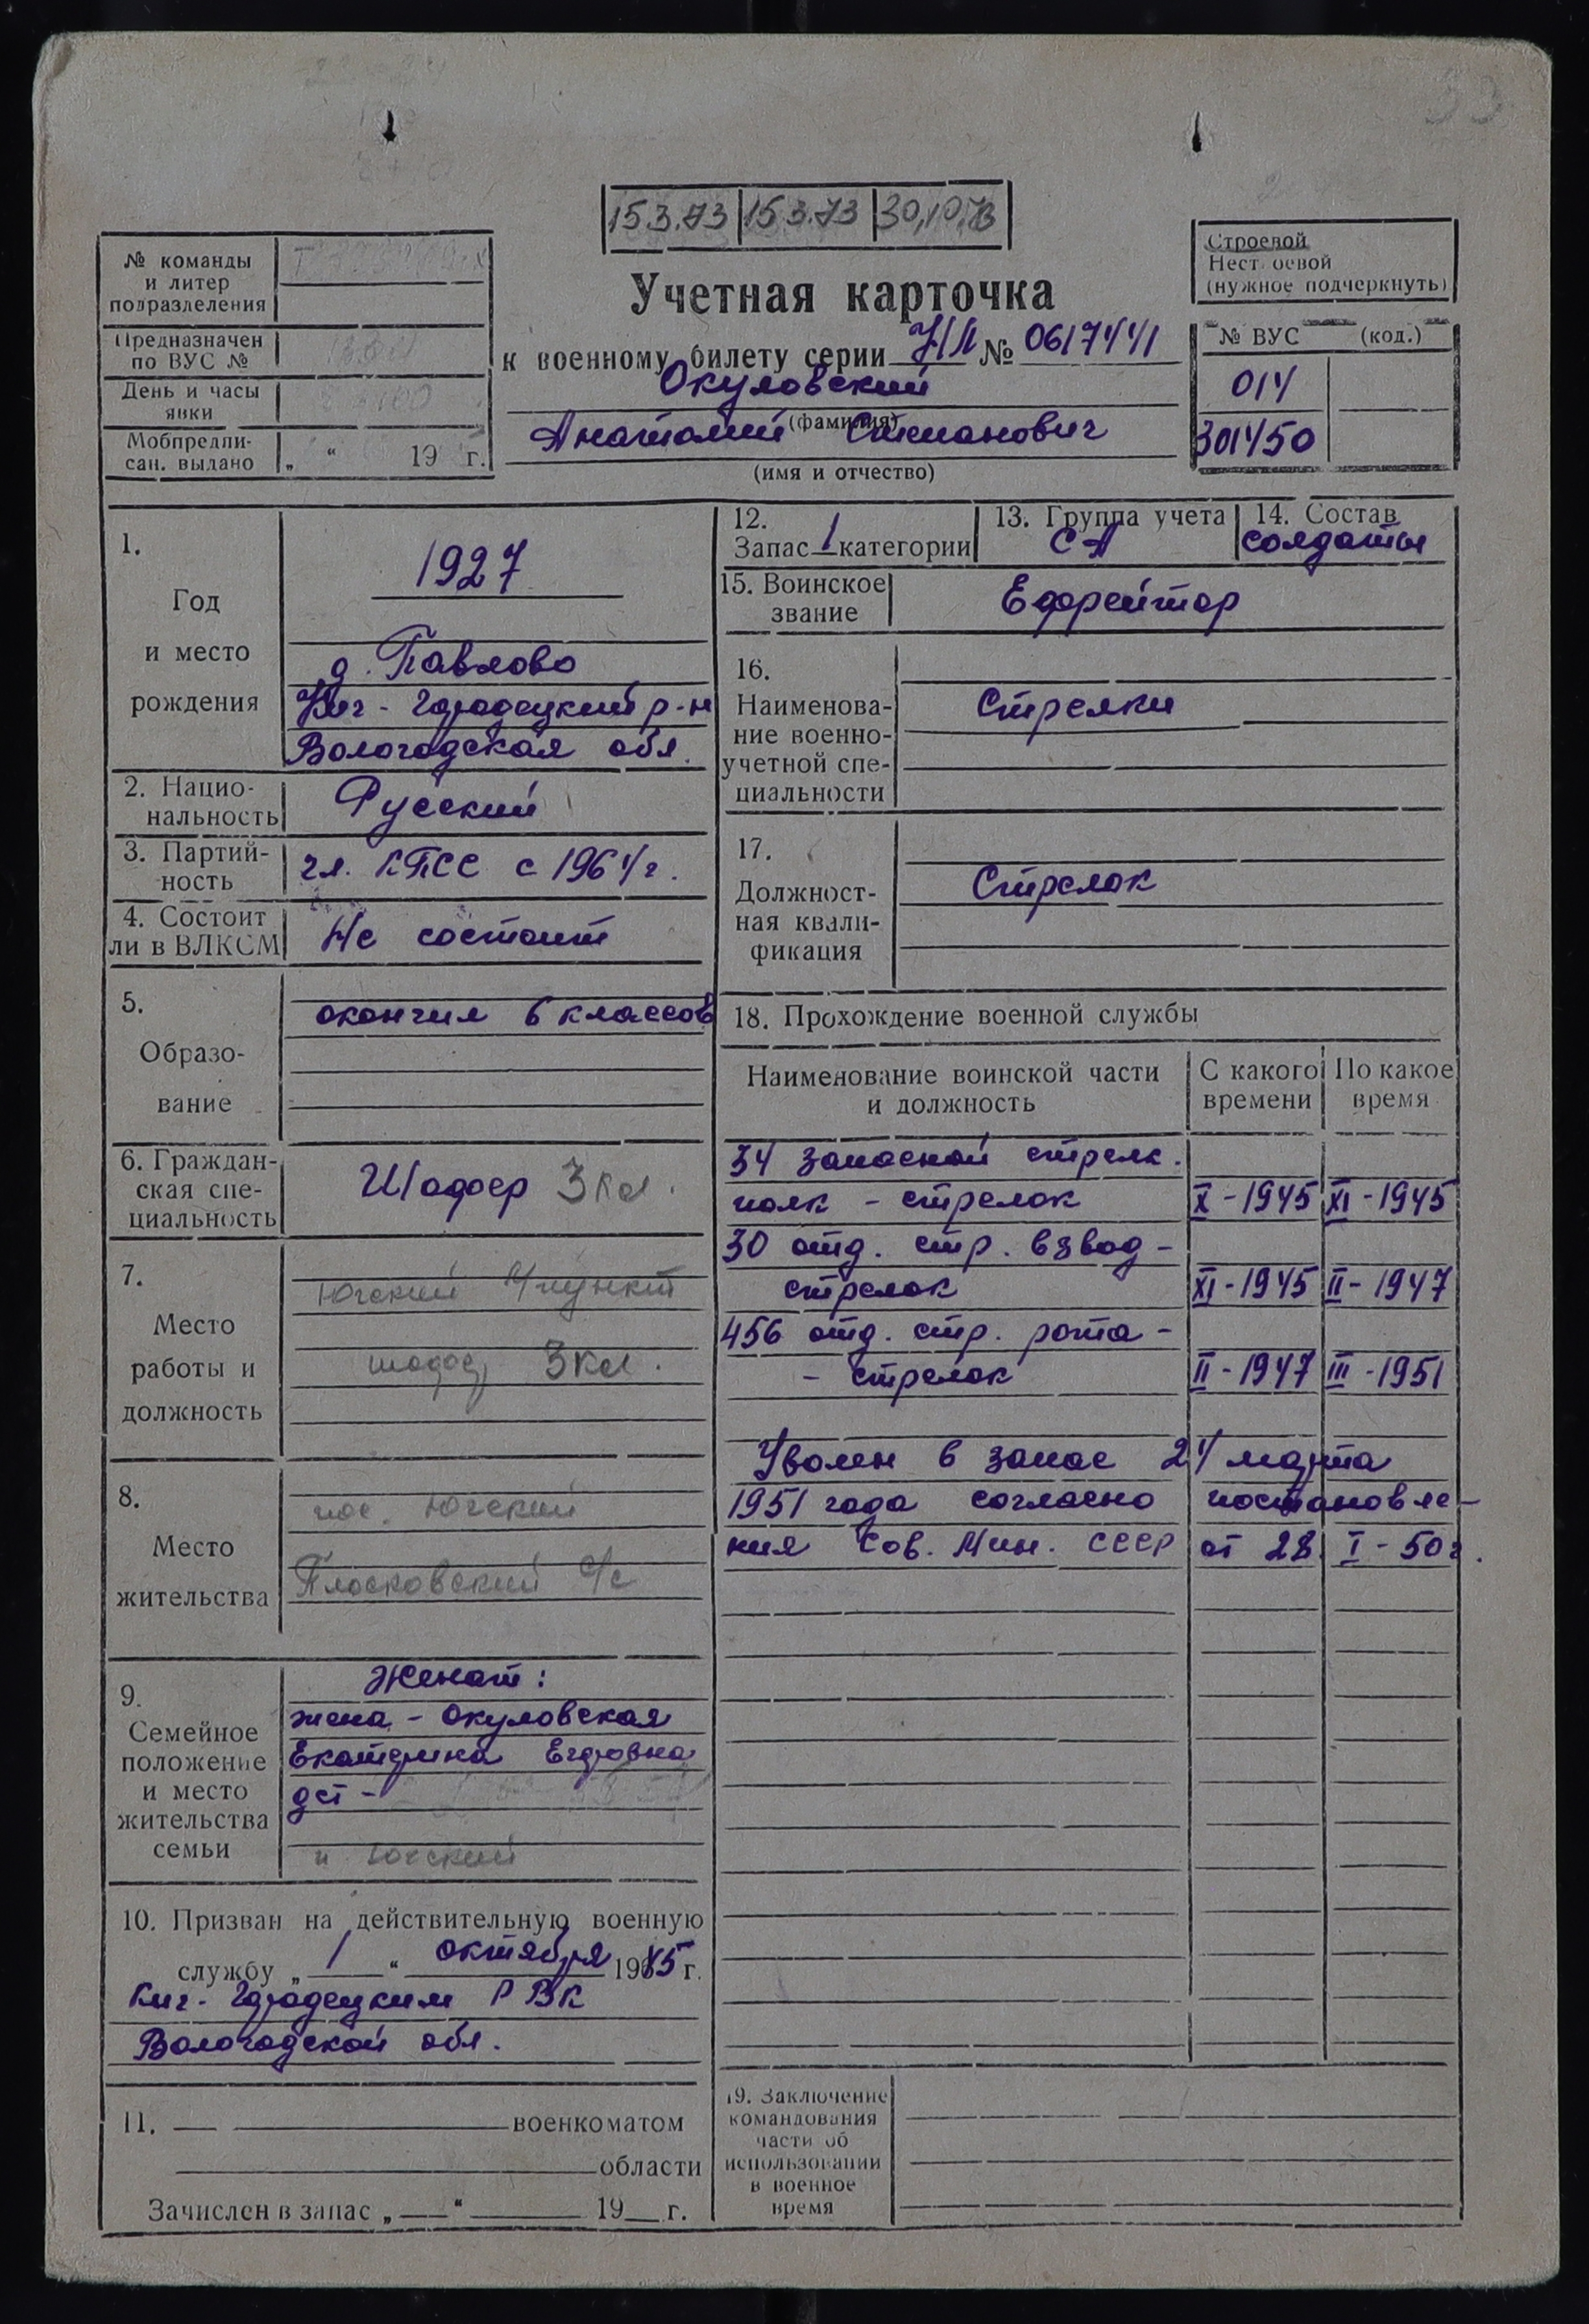 15.3.73 15.3.73 30.10.73
№ команды
и литер
подразделения
Предназначен
по ВУС №
День и часы
явки
Мобпредпи-
сан. выдано „ “ 19 г.
Учетная карточка
к военному билету серии НЛ № 0617441
Окуловский
(фамилия)
Анатолий Степанович
(имя и отчество)
Строевой
Нестроевой
(нужное подчеркнуть)
№ ВУС (код.)
014
301450
1.
Год
и место
рождения
1927
д. Павлово
Кич-Городецкий р-н
Вологодская обл.
2. Нацио-
нальность
Русский
3. Партий-
ность
чл. КПСС с 1964 г.
4. Состоит
ли в ВЛКСМ
Не состоит
5.
Образо-
вание
окончил 6 классов
6. Граждан-
ская спе-
циальность
Шофер 3 кл.
7.
Место
работы и
должность
Югский
шофер 3 кл.
8.
Место
жительства
пос. Югский
Плосковский с/с
9.
Семейное
положение
и место
жительства
семьи
Женат:
жена - Окуловская
Екатерина Егоровна
дети -
п Югский
10. Призван на действительную военную
службу „ 1 “ октября 1945 г.
Кич-Городецким РВК
Вологодской обл.
11. военкоматом
области
Зачислен в запас „ “ 19 г.
12.
Запас 1 категории
13. Группа учета
СА
14. Состав
солдаты
15. Воинское
звание
Ефрейтор
16.
Наименова-
ние военно-
учетной спе-
циальности
Стрелки
17.
Должност-
ная квали-
фикация
Стрелок
18. Прохождение военной службы
Наименование воинской части
и должность
С какого
времени
По какое
время
34 запасной стрелк.
полк - стрелок X - 1945 XI - 1945
30 отд. стр. взвод -
стрелок XI - 1945 II - 1947
456 отд. стр. рота -
- стрелок II - 1947 III - 1951
Уволен в запас 24 марта
1951 года согласно постановле-
ния Сов. Мин. СССР от 28 I - 50 г.
19. Заключение
командования
части об
использовании
в военное
время